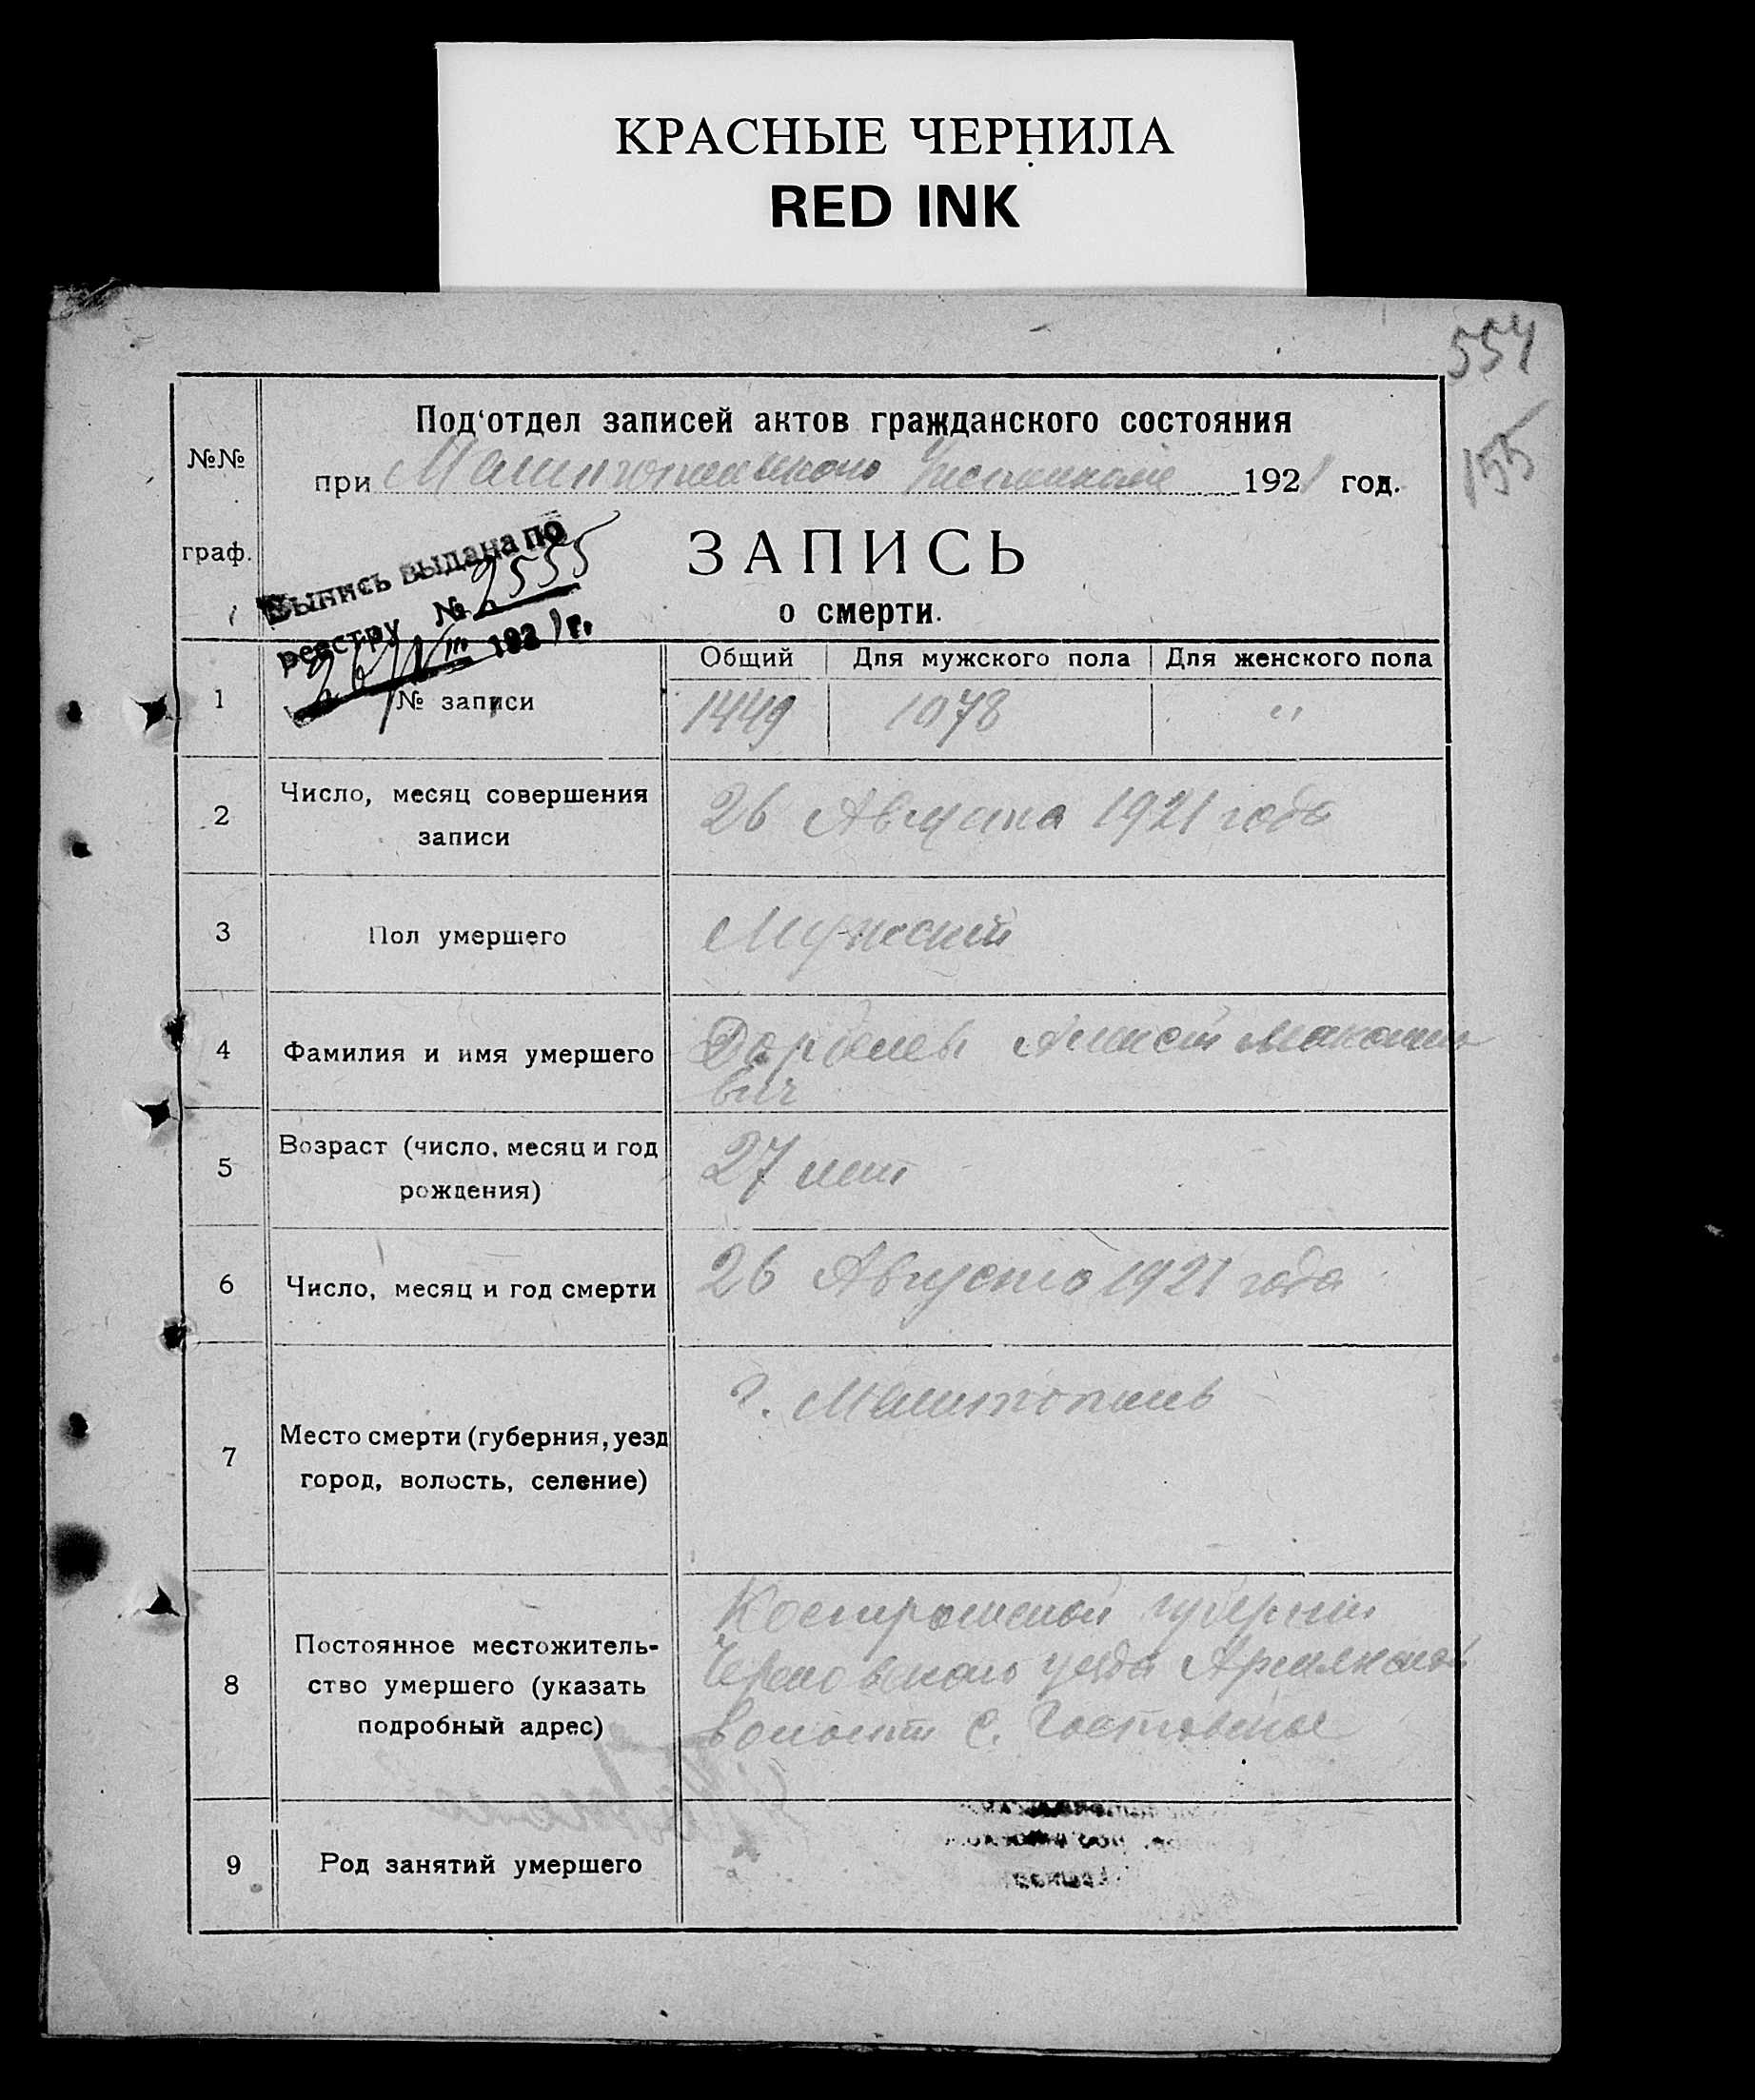 КРАСНЫЕ ЧЕРНИЛА
RED INK
554
155
Под'отдел записей актов гражданского состояния
№№ граф.
при Мелитопольского Уисполкоме 1921 год.
Выпись выдана по
реестру № 2555
26/VIII 1921 г.
ЗАПИСЬ
о смерти.
Общий Для мужского пола Для женского пола
1 № записи 1449 1078 "
2 Число, месяц совершения
записи
26 Августа 1921 года
3 Пол умершего Мужской
4 Фамилия и имя умершего Алексей
вич
5 Возраст (число, месяц и год
рождения)
27 лет
6 Число, месяц и год смерти 26 Августа 1921 года
7 Место смерти (губерния, уезд
город, волость, селение)
г. Мелитополь
8 Постоянное местожитель-
ство умершего (указать
подробный адрес)
Костромской губернии
уезда
волости с.
9 Род занятий умершего